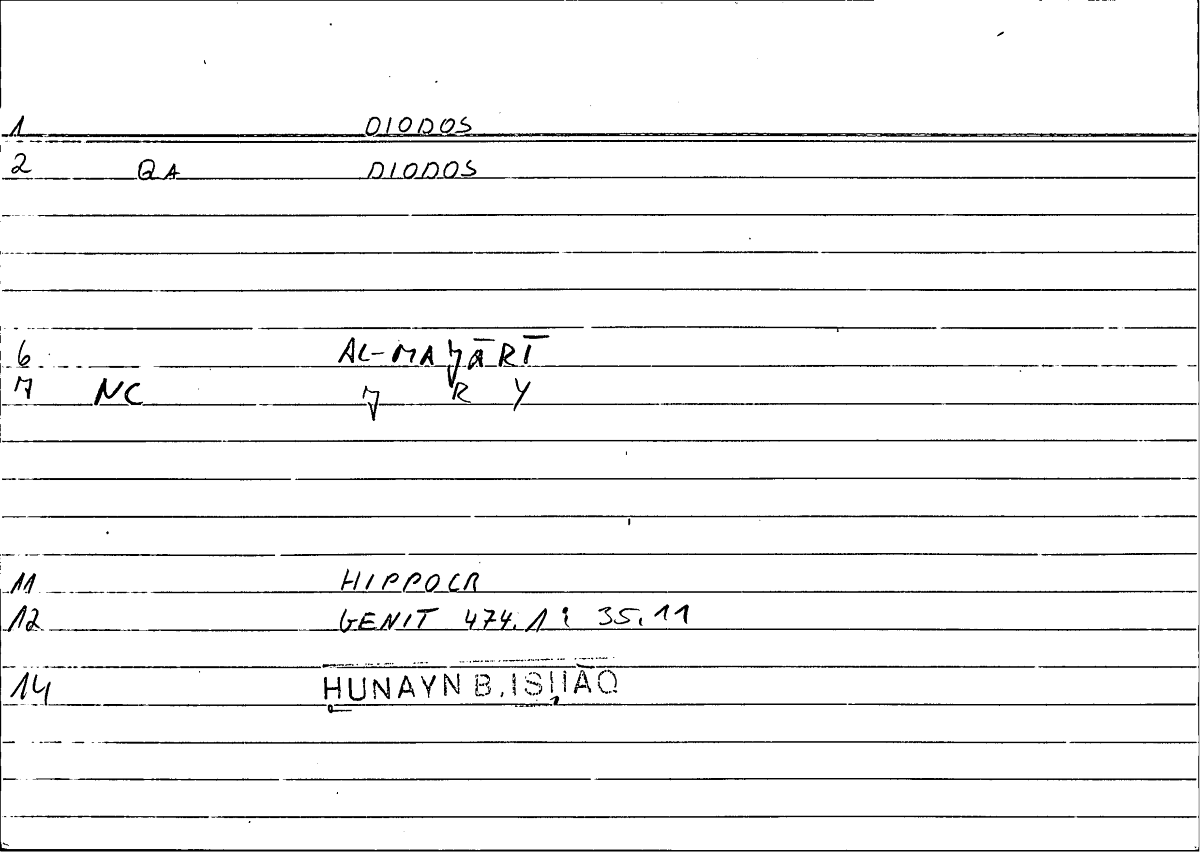 1 DIODOS
2 QA DIODOS
6 AL-MAJ̌ĀRĪ
7 NC J̌ R Y
11 HIPPOCR
12 GENIT 474.1 : 35.11
14 ḤUNAYN B. ISḤĀQ